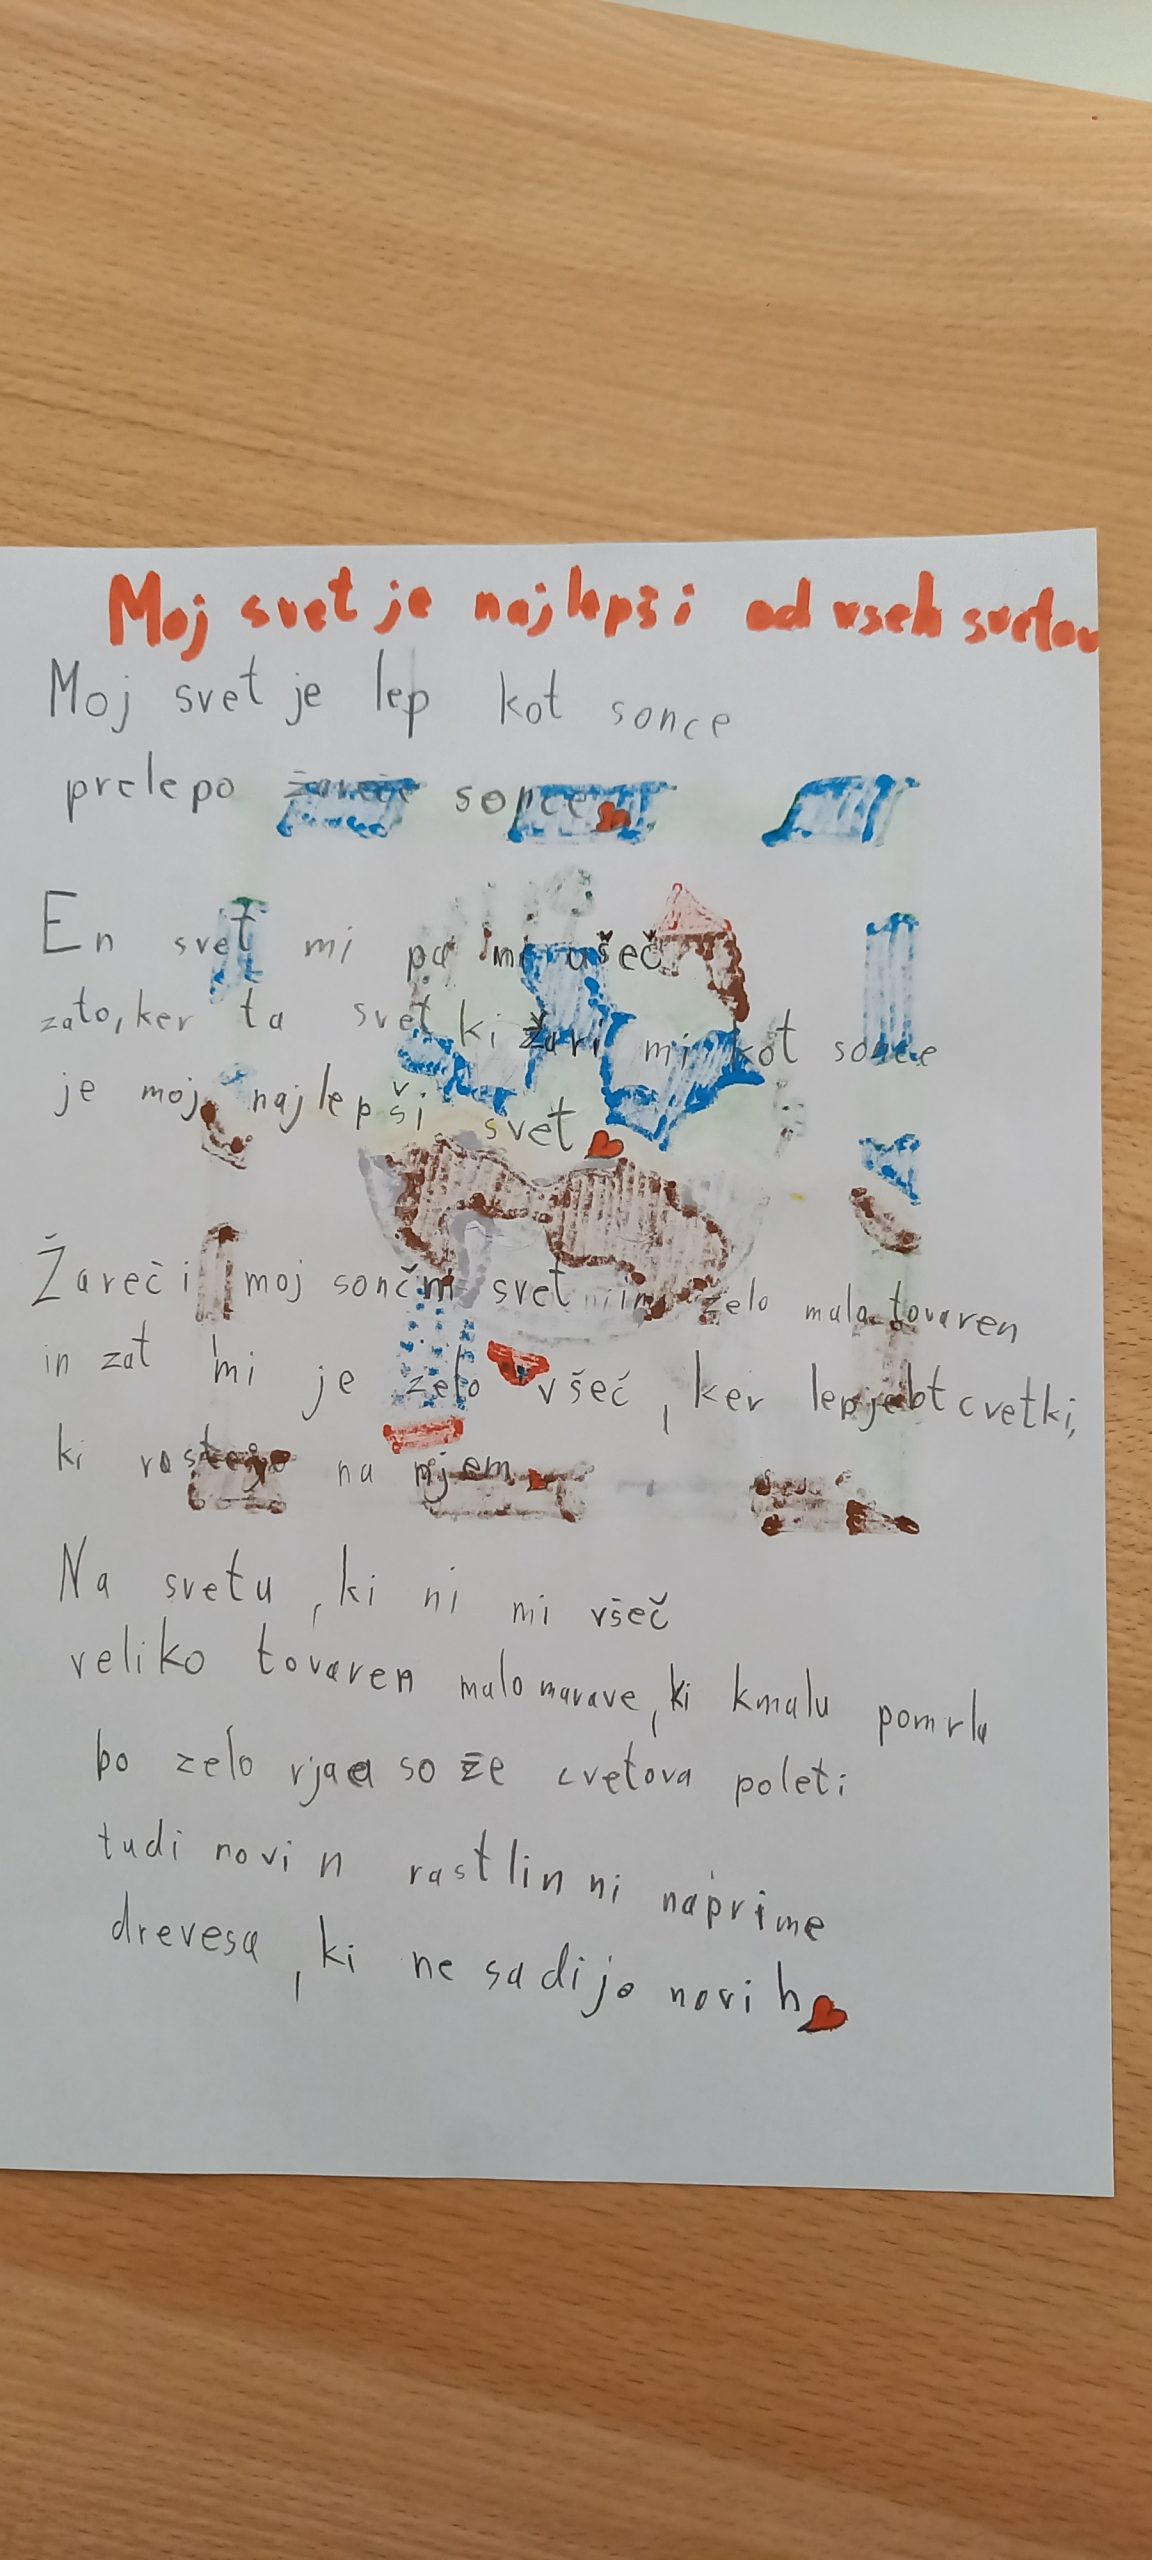 Moj svet je najlepši od vseh svetov
Moj svet je lep kot sonce
prelepo žareče sonce
En svet mi pa ni všeč
zato, ker ta svet ki žari mi kot sonce
je moj najlepši svet
Žareči moj sončni svet nima zelo malo tovaren
in zat mi je zelo všeč, ker lep je kot cvetki,
ki rastejo na njem
Na svetu, ki ni mi všeč
veliko tovaren malo narave, ki kmalu pomrla
bo zelo rjae so že cvetova poleti
tudi novi n rastlin ni naprime
drevesa, ki ne sadijo novih